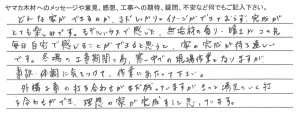 ヤマカ木材へのメッセージや意見、感想、工事への期待、疑問、不安など何でもご記入下さい。
どんな家ができるのか、まだしっかりイメージができておらず、完成が
とても楽しみです。モデルハウスで感じた、無垢材の香り・暖かさを
毎日自宅で感じることができると思うと、家の完成が待ち遠しい
です。冬場の工事期間の為、寒い中での現場作業になりますが
事故・体調に気をつけて、作業にあたって下さい。
外構工事の打ち合わせがまだ残っていますが、きっと満足のいく打
ち合わせができ、理想の家が完成すると思っています。